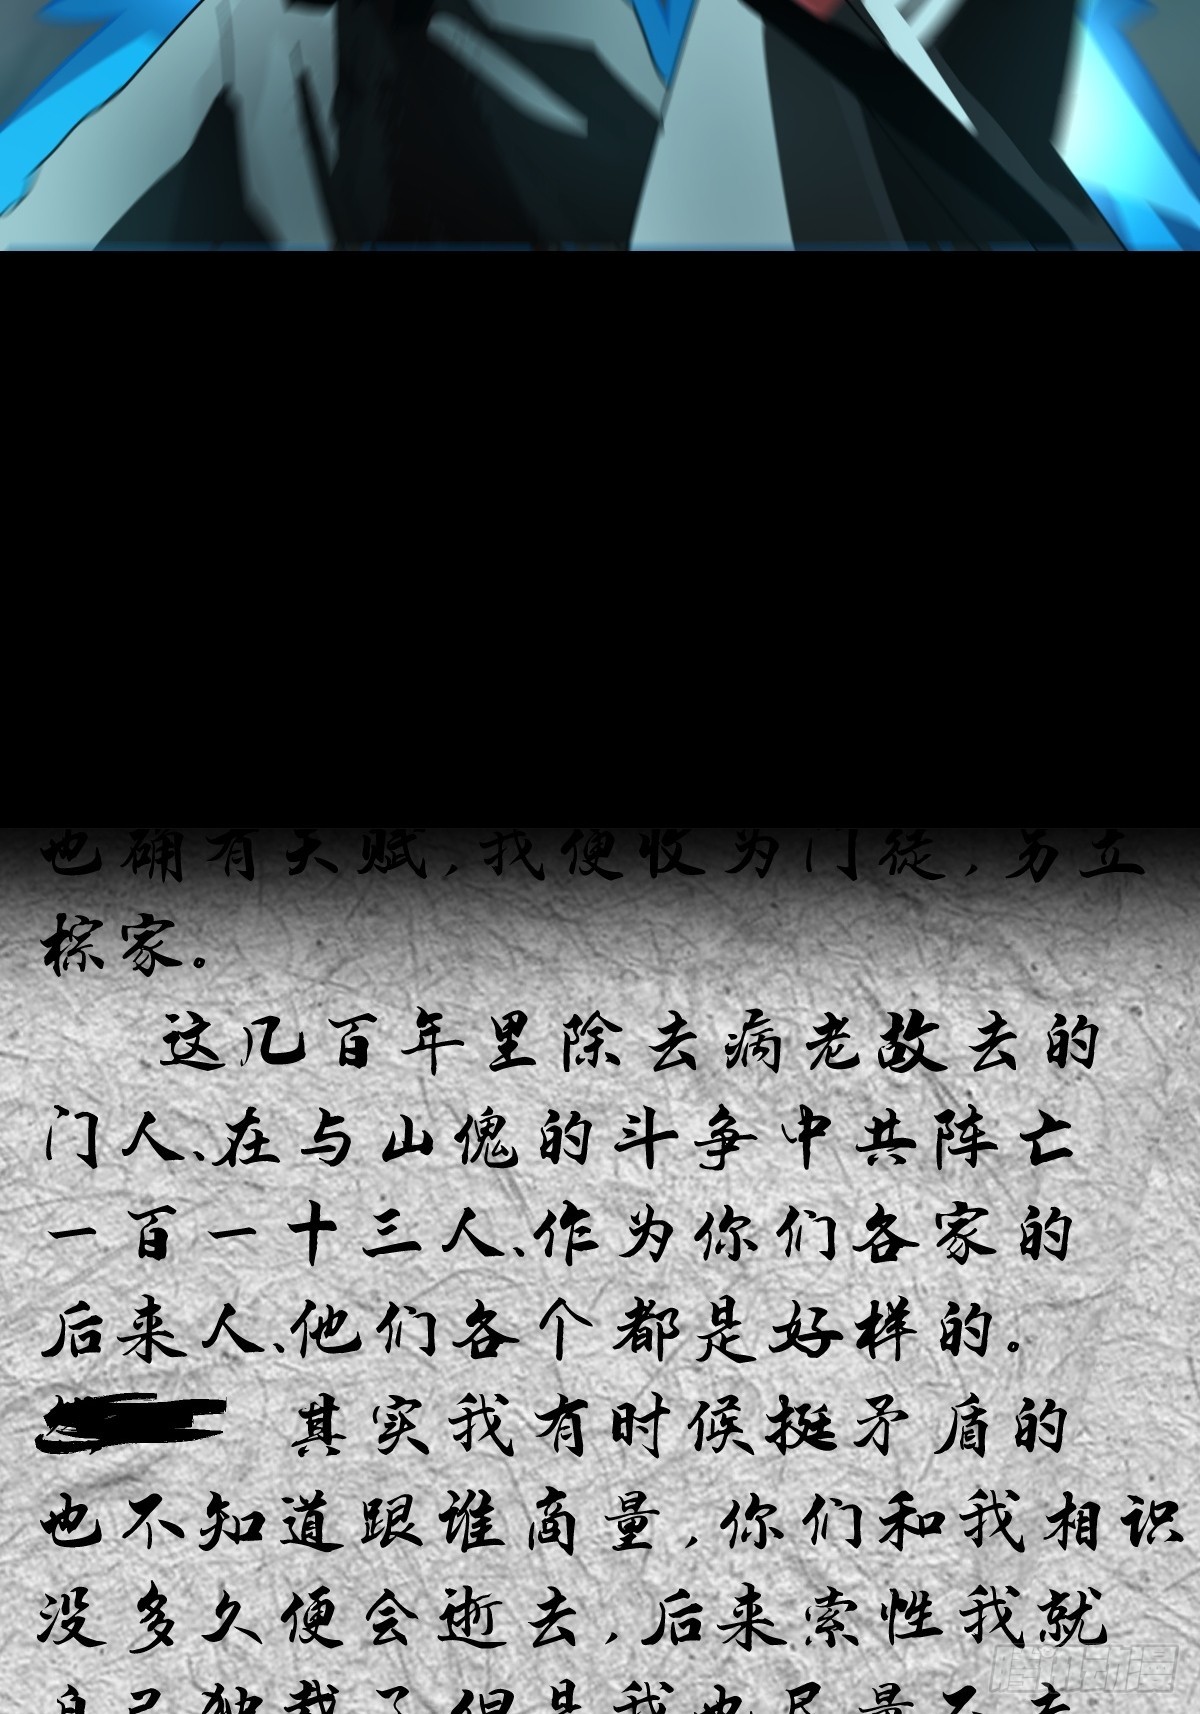 也确有天赋，我便收为门徒，另立
棕家。
这几百年里除去病老故去的
门人、在与山傀的斗争中共阵亡
一百一十三人、作为你们各家的
后来人、他们各个都是好样的。
其实我有时候挺矛盾的
也不知道跟谁商量，你们和我相识
没多久便会逝去，后来索性我就
自己独裁了但是我也尽量不去